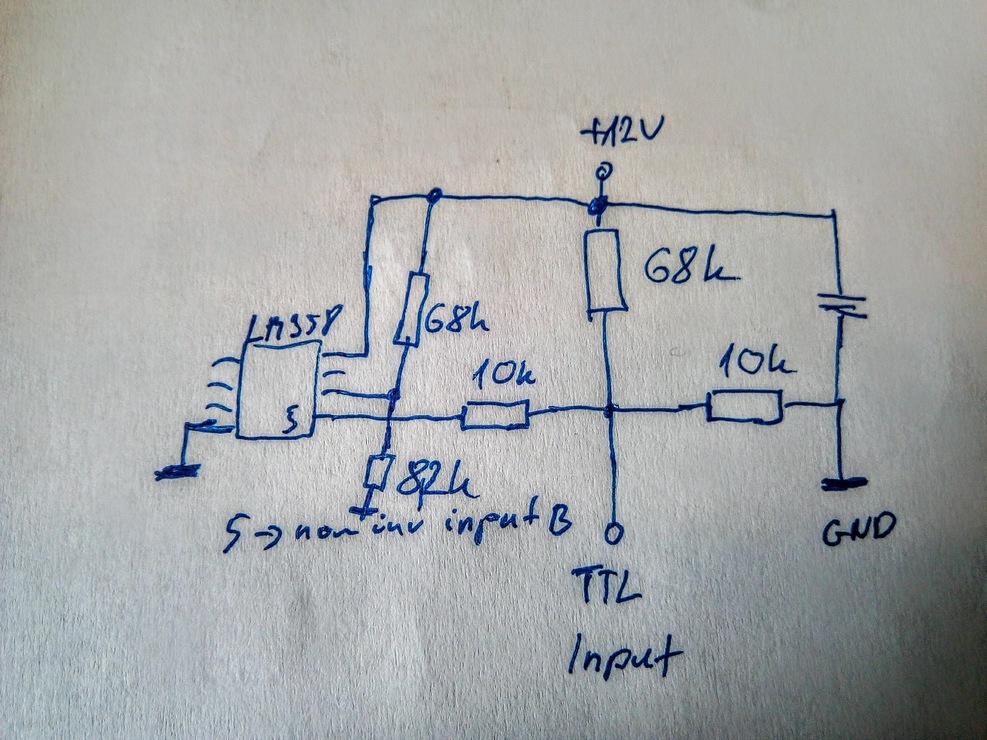 +12V
68k
LM358
68k
10k
10k
5
82k
5 → non inv input B
GND
TTL
Input